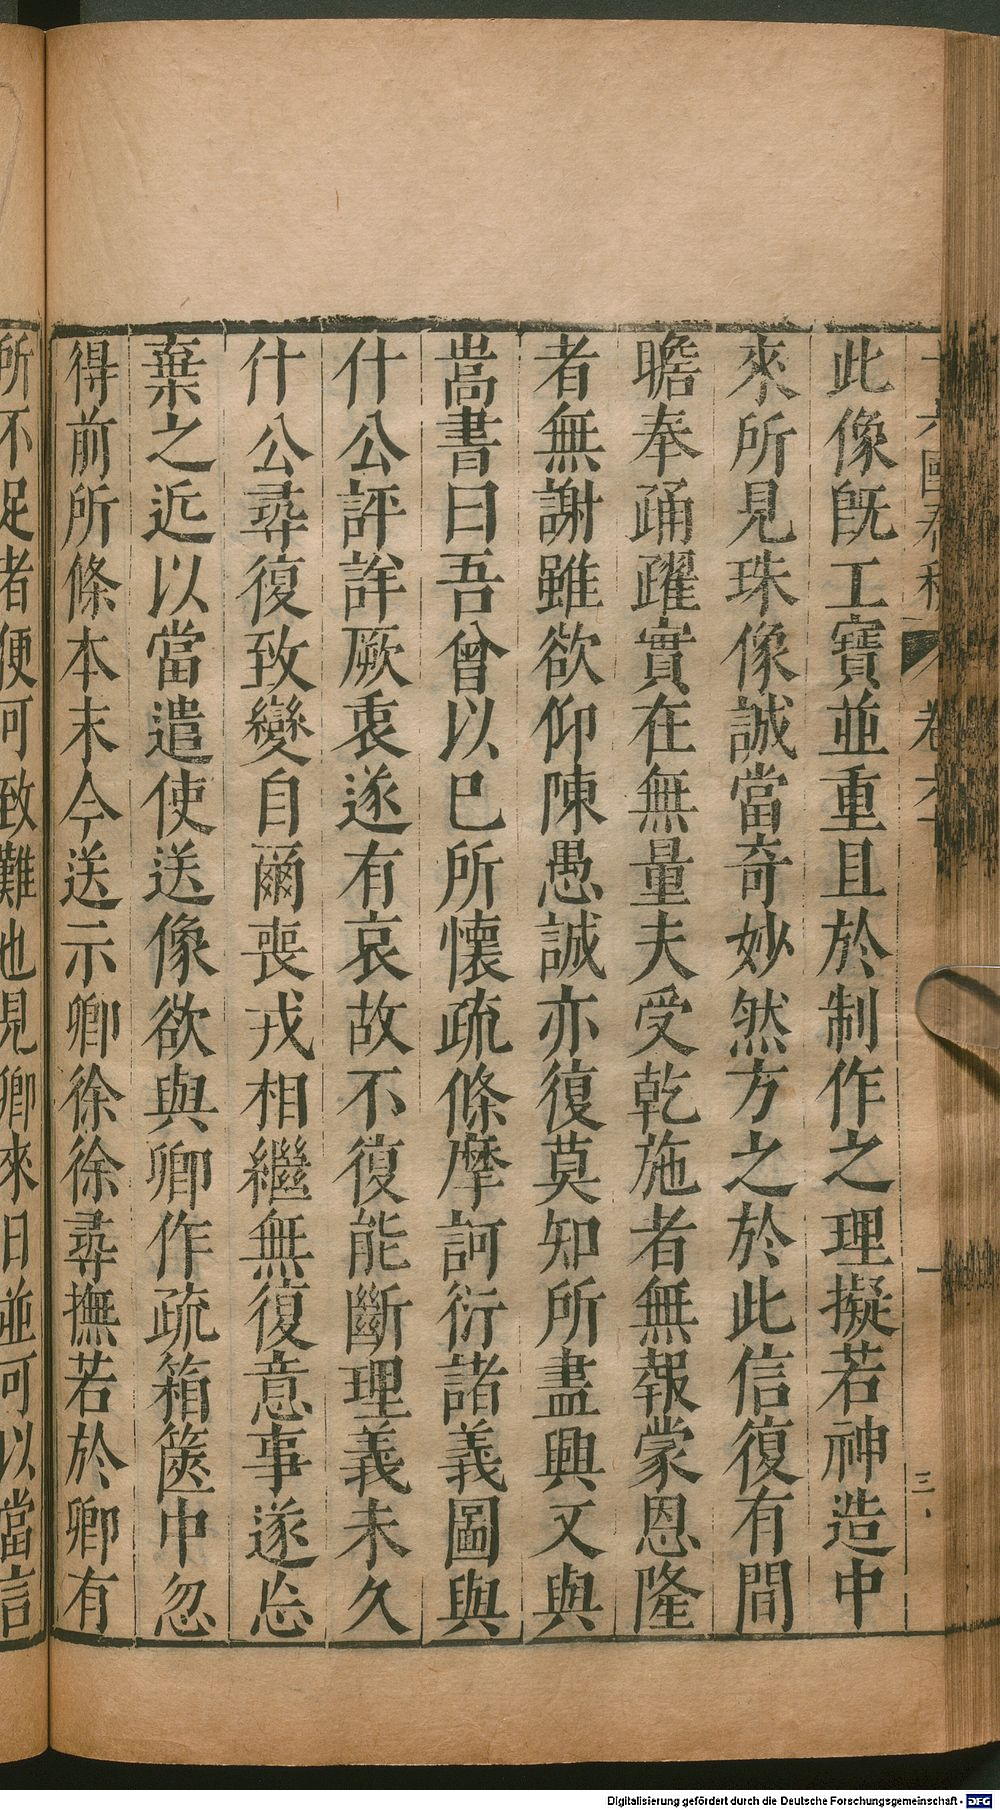 十六國春秋 卷六十 三
此像旣工寶並重且於制作之理擬若神造中
來所見珠像誠當奇妙然方之於此信復有間
瞻奉踊躍實在無量夫受乾施者無報蒙恩隆
者無謝雖欲仰陳愚誠亦復莫知所盡興又與
嵩書曰吾曾以已所懷疏條摩訶衍諸義圖與
什公評詳厥衷遂有哀故不復能斷理義未久
什公尋復致變自爾喪戎相繼無復意事遂忘
棄之近以當遣使送像欲與卿作疏箱篋中忽
得前所條本末今送示卿徐徐尋撫若於卿有
所不足者便可致難也見卿來日並可以當言
Digitalisierung gefördert durch die Deutsche Forschungsgemeinschaft - DFG